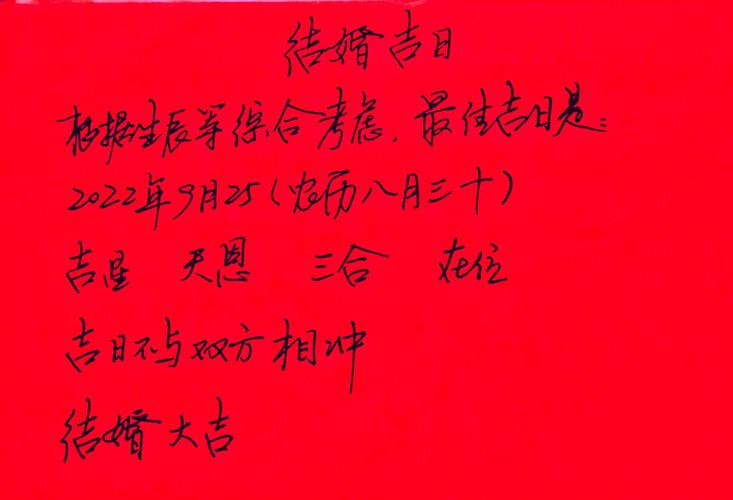 结婚吉日
根据生辰等综合考虑，最佳吉日是：
2022年9月25（农历八月三十）
吉星 天恩 三合 在位
吉日不与双方相冲
结婚大吉